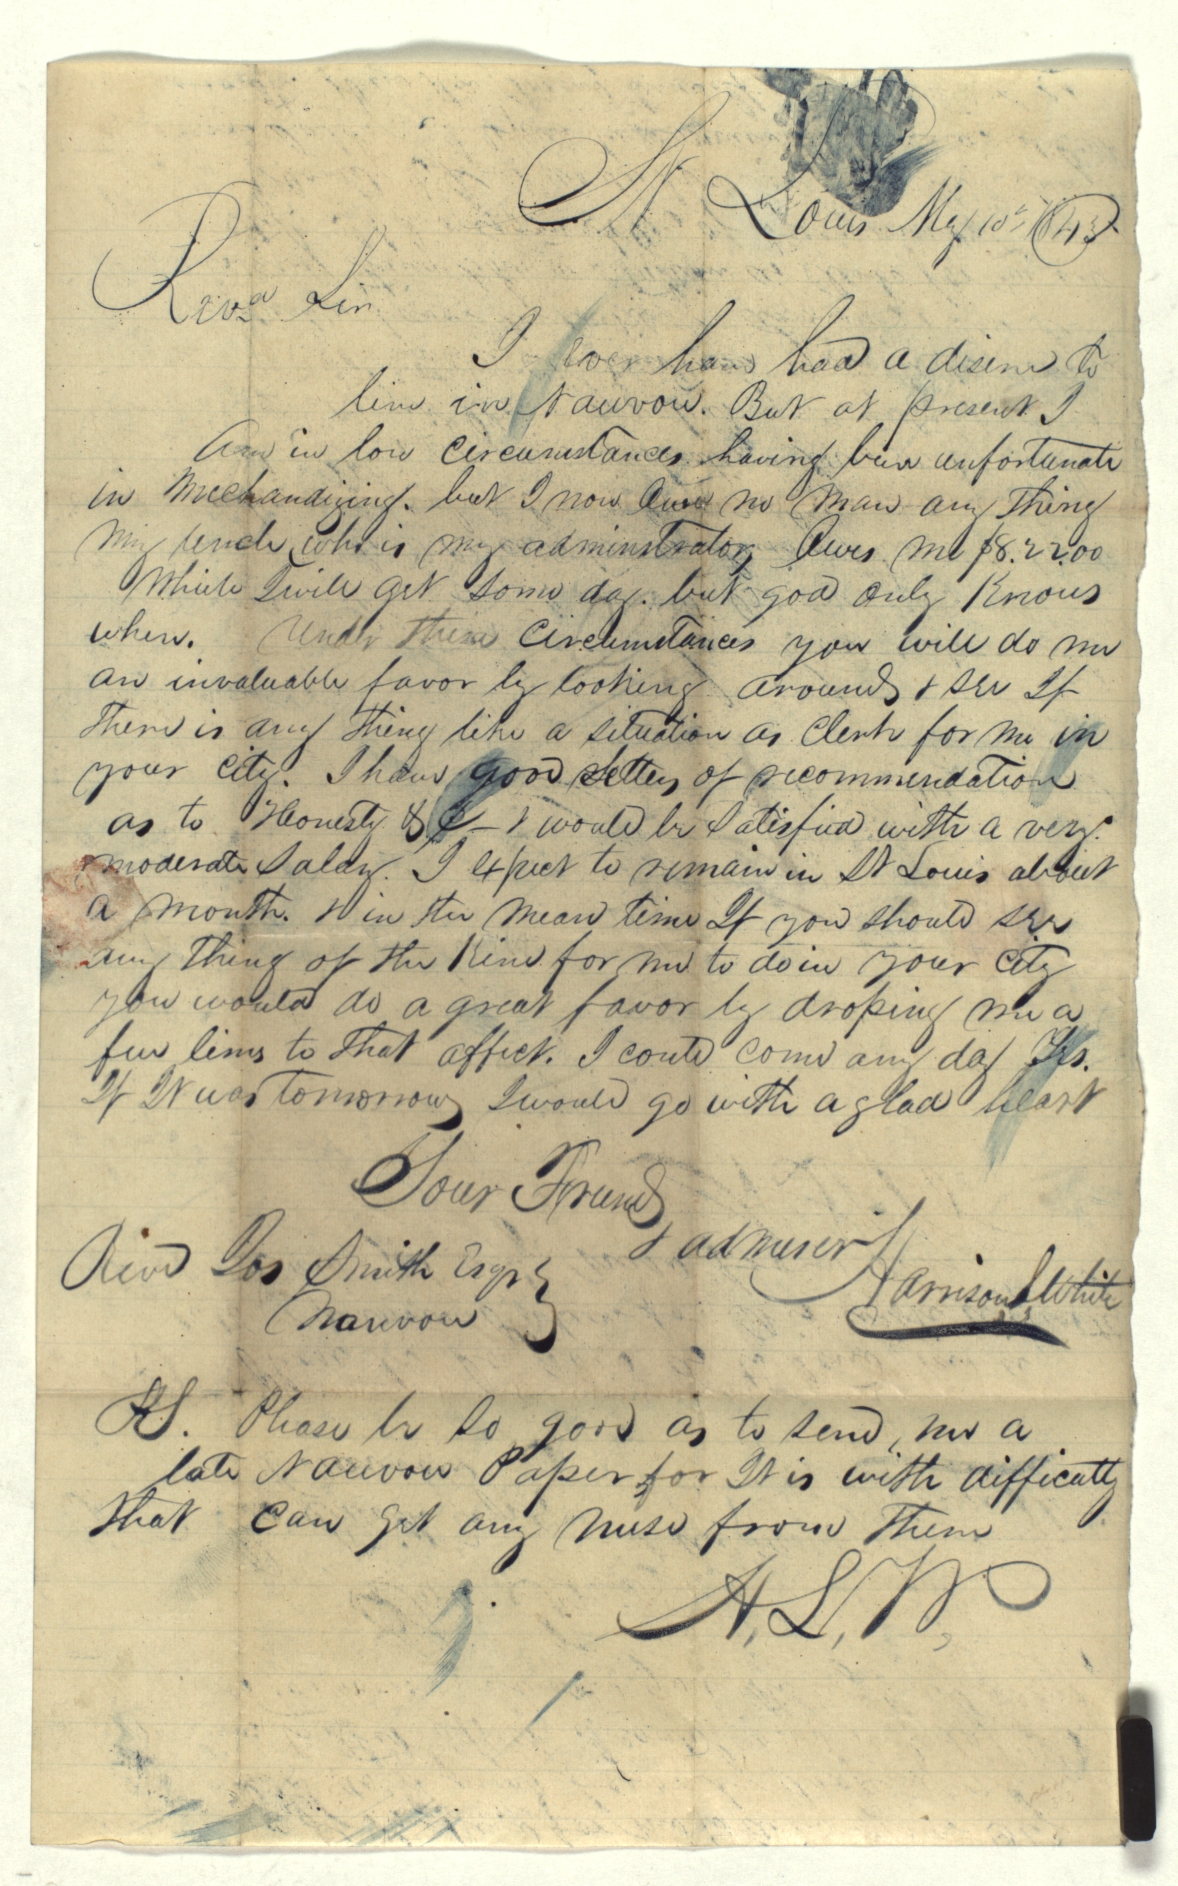 St Louis May 10th 1843
Revd Sir
I ever have had a disere to
live in Nauvou. But at present I
Am in low circumstances having been unfortunate
in Mechandizing. but I now Owe no Man any thing
My Uncle, who is my adminstrator, Owes me $8.22.00
Which I will get some day. but god only Knows
when. Under these circumstances you will do me
an invaluable favor by looking around & see If
there is any thing like a situation as Clerk for me in
your city. I have good Letters of recommendation
as to Honesty &c – & would be Satisfied with a very
moderate Salary. I expect to remain in St Louis about
a month. & in the mean time If you should see
any thing of the Kind for me to do in your City
you would do a great favor by droping me a
few lines to that affect. I could come any day Yes.
If It was tomorrow I would go with a glad heart
Your Friend
& admirer
Harrison L White
Revd Jos Smith Esqr
Nauvou
PS. Please be so good as to send me a
late Nauvou Paper for It is with difficulty
that can get any nuse from there
H. L. W.